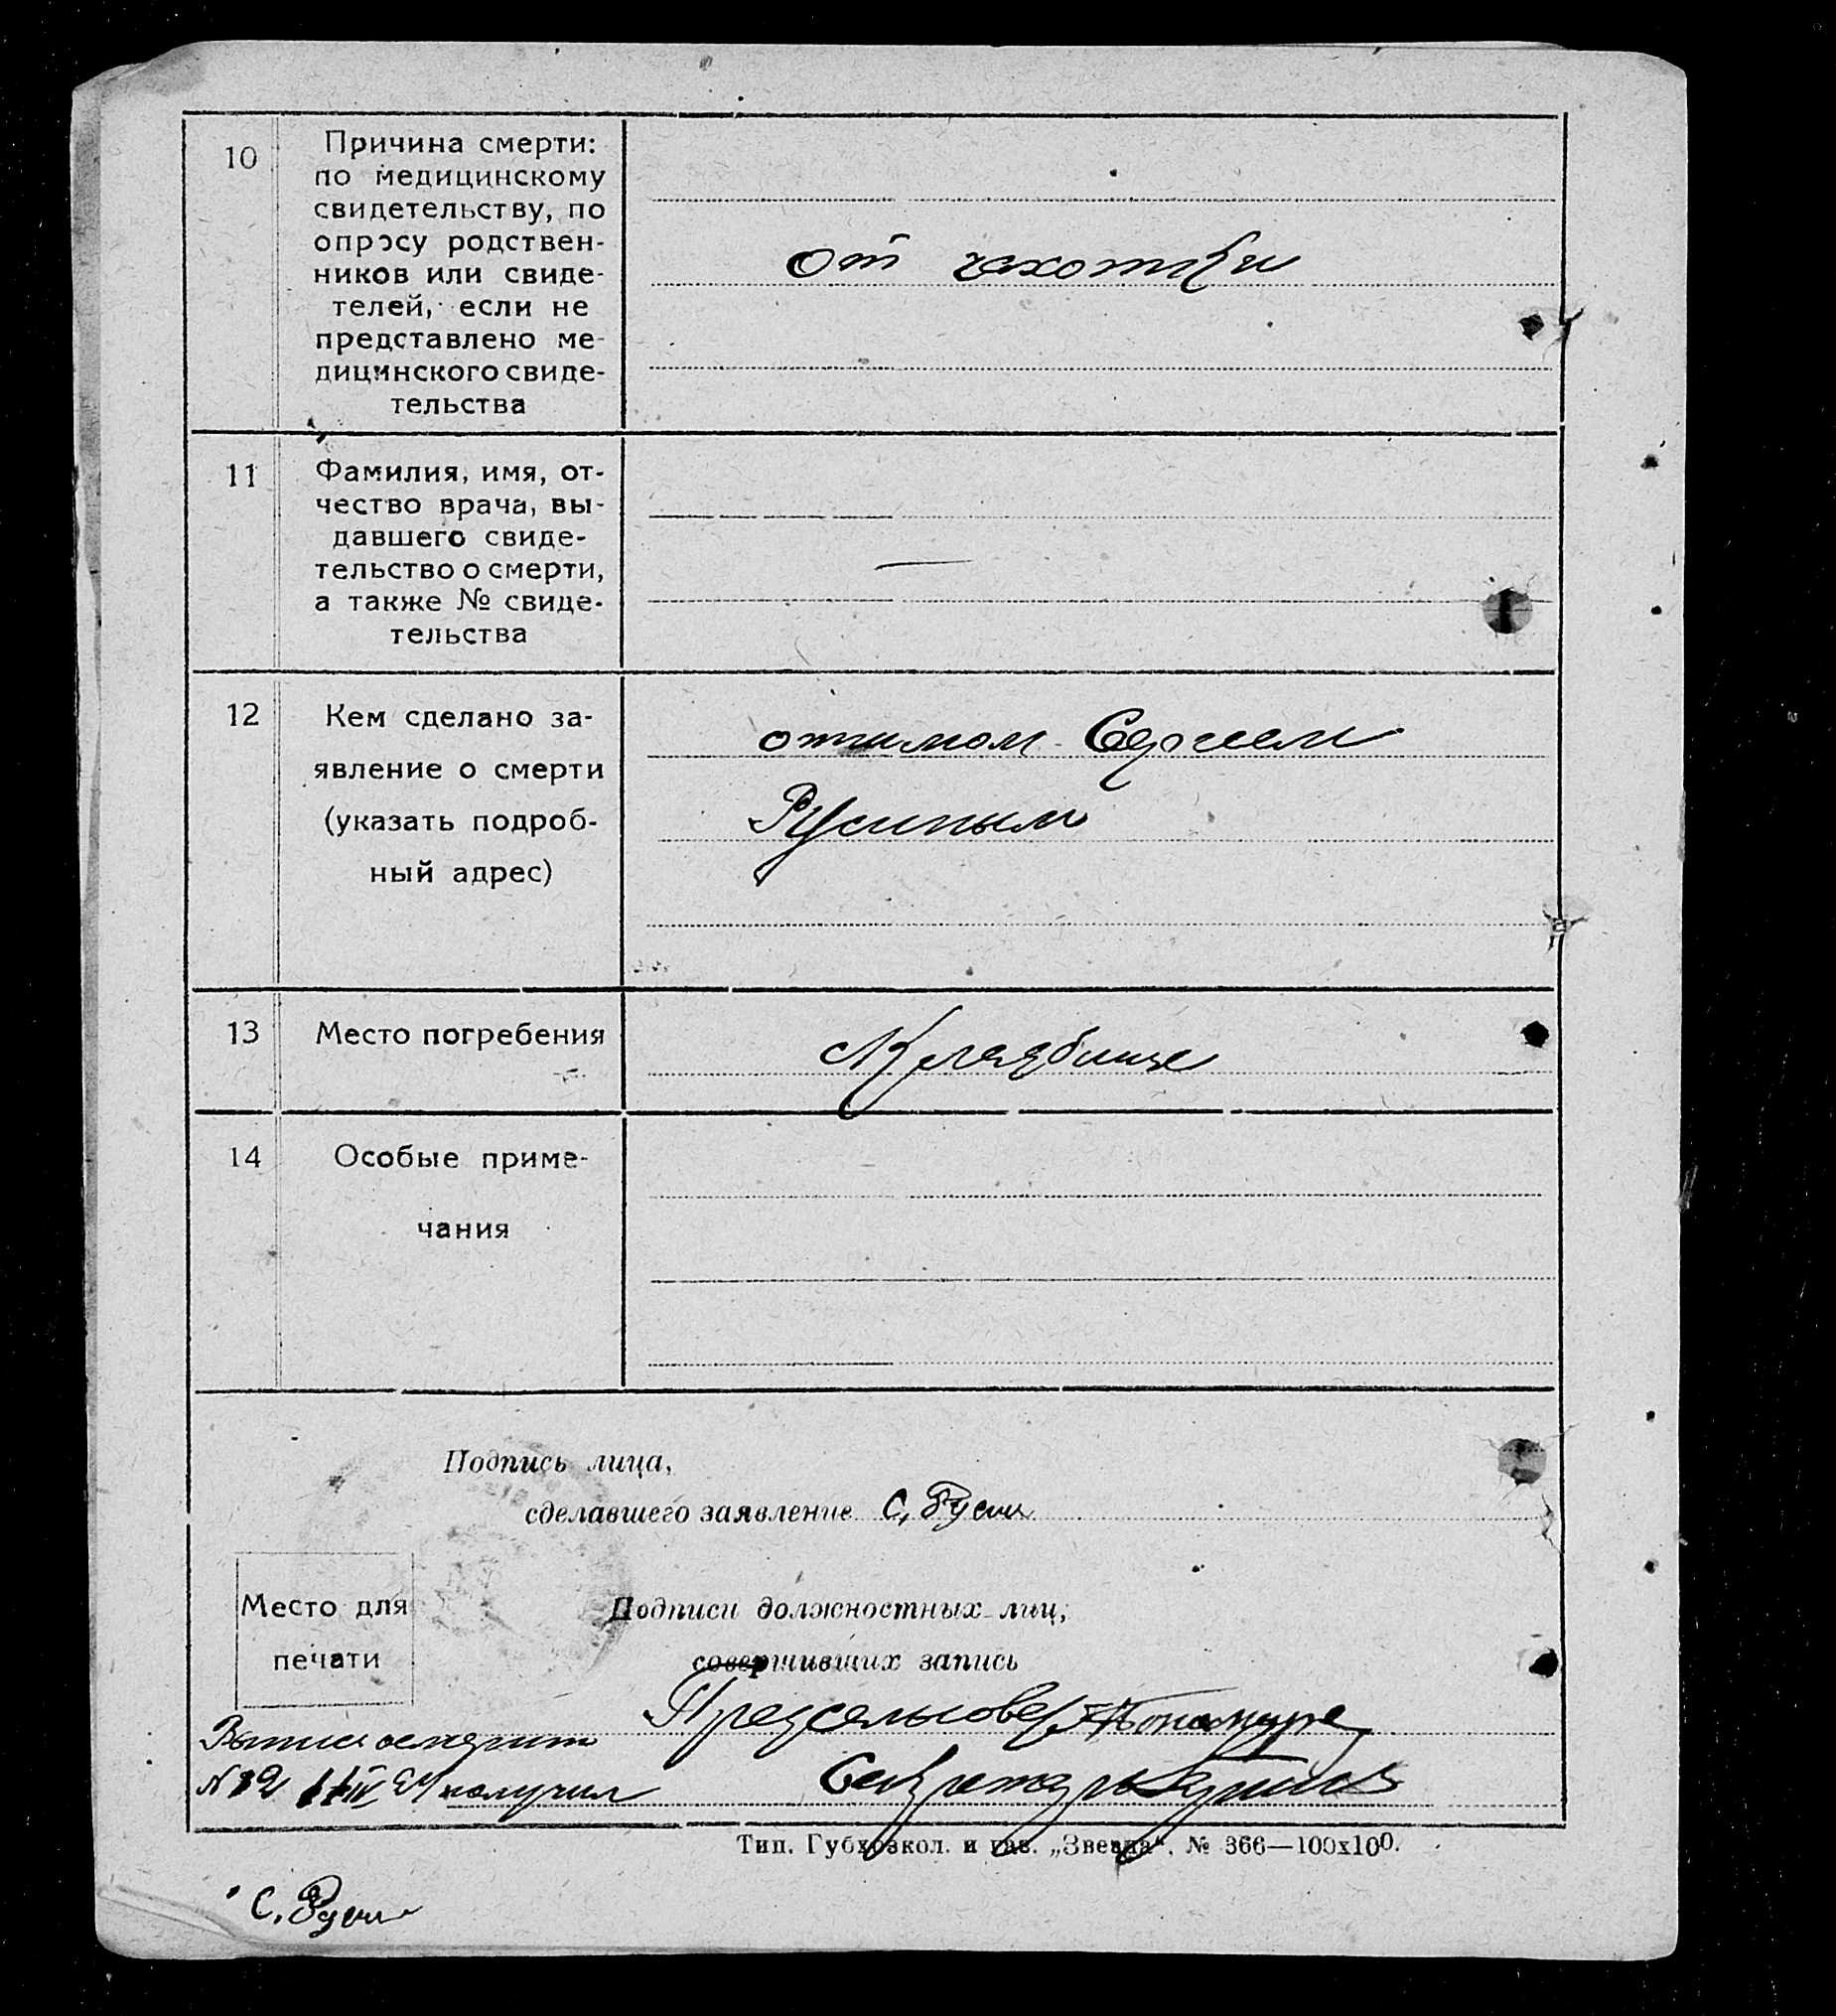 10
Причина смерти:
по медицинскому
свидетельству, по
опросу родствен-
ников или свиде-
телей, если не
представлено ме-
дицинского свиде-
тельства
от чахотки
11
Фамилия, имя, от-
чество врача, вы-
давшего свиде-
тельство о смерти,
а также № свиде-
тельства
—
12
Кем сделано за-
явление о смерти
(указать подроб-
ный адрес)
отчимом Сергеем
Русиным
13
Место погребения
Кладбище
14
Особые приме-
чания
Подпись лица,
сделавшего заявление С. Русин
Место для
печати
Подписи должностных лиц,
совершивших запись
Предсельсовета
Секретарь
№ получил
Тип. Губхозкол. и газ. „Звезда“. № 366—100х100.
С. Русин